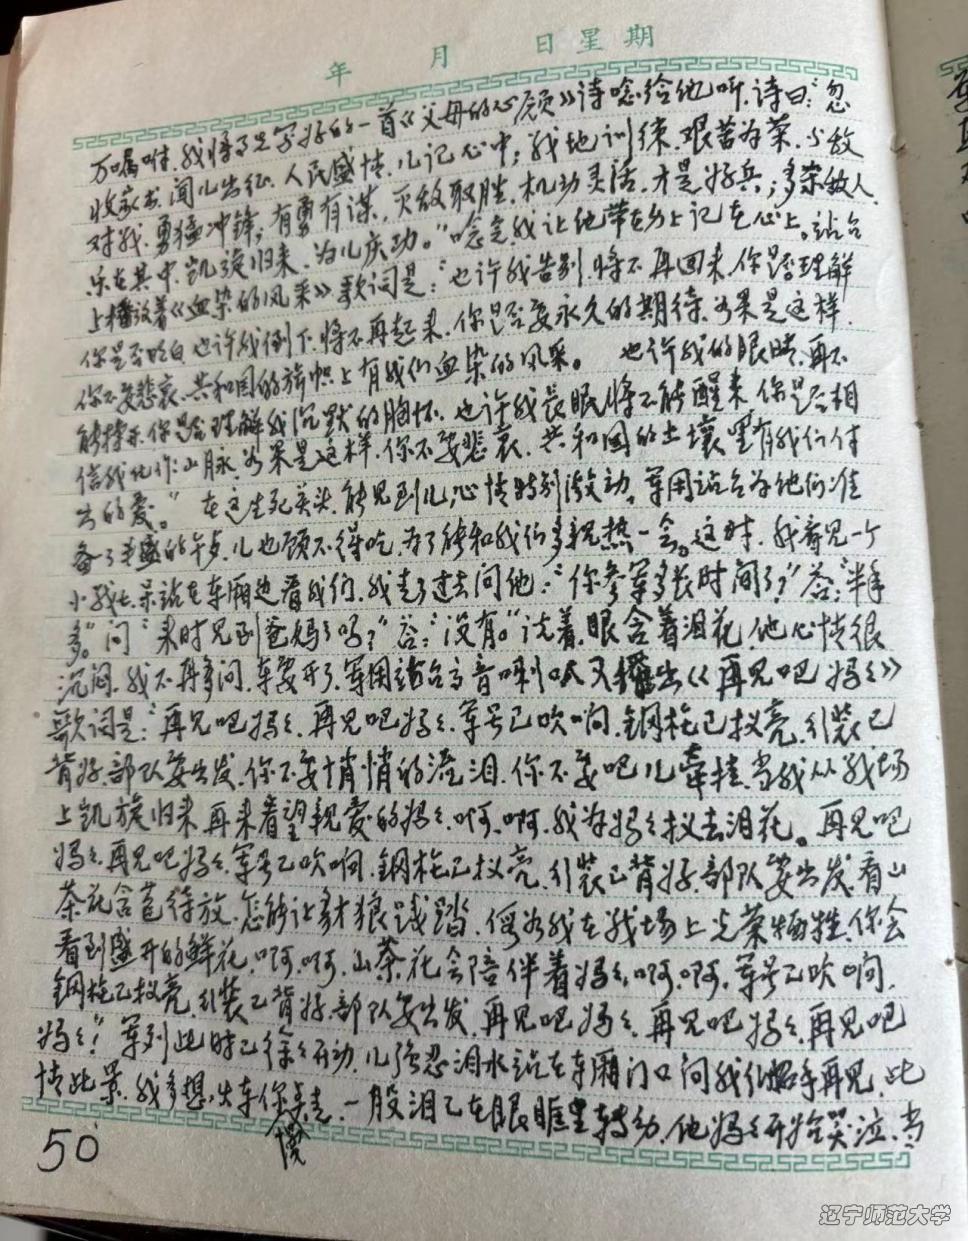 年 月 日 星期
万嘱咐，我将事先写好的一首《父母的心愿》诗唸给他听，诗曰：“忽
收家书，闻儿出征，人民盛情，儿记心中；战地训练，艰苦为荣，与敌
对战，勇猛冲锋；有勇有谋，灭敌取胜，机动灵活，才是好兵；多杀敌人，
乐在其中，凯旋归来，为儿庆功。”唸完我让他带在身上记在心上。站台
上播放着《血染的风采》歌词是：“也许我告别，将不再回来，你是否理解
你是否明白，也许我倒下，将不再起来，你是否要永久的期待，如果是这样，
你不要悲哀，共和国的旗帜上有我们血染的风采。 也许我的眼睛，再不
能睁开，你是否理解我沉默的胸怀，也许我长眠将不能醒来，你是否相
信我化作山脉，如果是这样，你不要悲哀，共和国的土壤里有我们付
出的爱。”在这生死关头，能见到儿，心情特别激动。军用站台为他们准
备了丰盛的午歺，儿也顾不得吃，为了能和我们多亲热一会。这时，我看见一个
小战士呆站在车厢边看我们，我走了过去问他：“你参军多长时间了？”答：“半年
多。”问“来时见到爸妈了吗？”答：“没有。”说着，眼含着泪花，他心情很
沉闷，我不再多问，车要开了，军用站台高音喇叭又播出《再见吧妈々》
歌词是：“再见吧妈々，再见吧妈々，军号已吹响，钢枪已扠亮，引装已
背好，部队要出发，你不要悄悄的流泪，你不要吧儿牵挂，当我从战场
上凯旋归来，再来看望亲爱的妈々，啊，啊，我为妈々扠去泪花。再见吧
妈々，再见吧妈々，军号已吹响，钢枪已扠亮，引装已背好，部队要出发，看山
茶花含苞待放，怎能让豺狼践踏，倘若我在战场上光荣牺牲，你会
看到盛开的鲜花，啊，啊，山茶花会陪伴着妈々，啊，啊，军号已吹响，
钢枪已扠亮，引装已背好，部队要出发，再见吧妈々，再见吧妈々，再见吧
妈々！”军列此时已徐々开动，儿强忍泪水站在车厢门口向我们招手再见，此
情此景，我多想，火车你慢点走，一股泪已在眼眶里转动，他妈々开始哭泣，当
50
辽宁师范大学